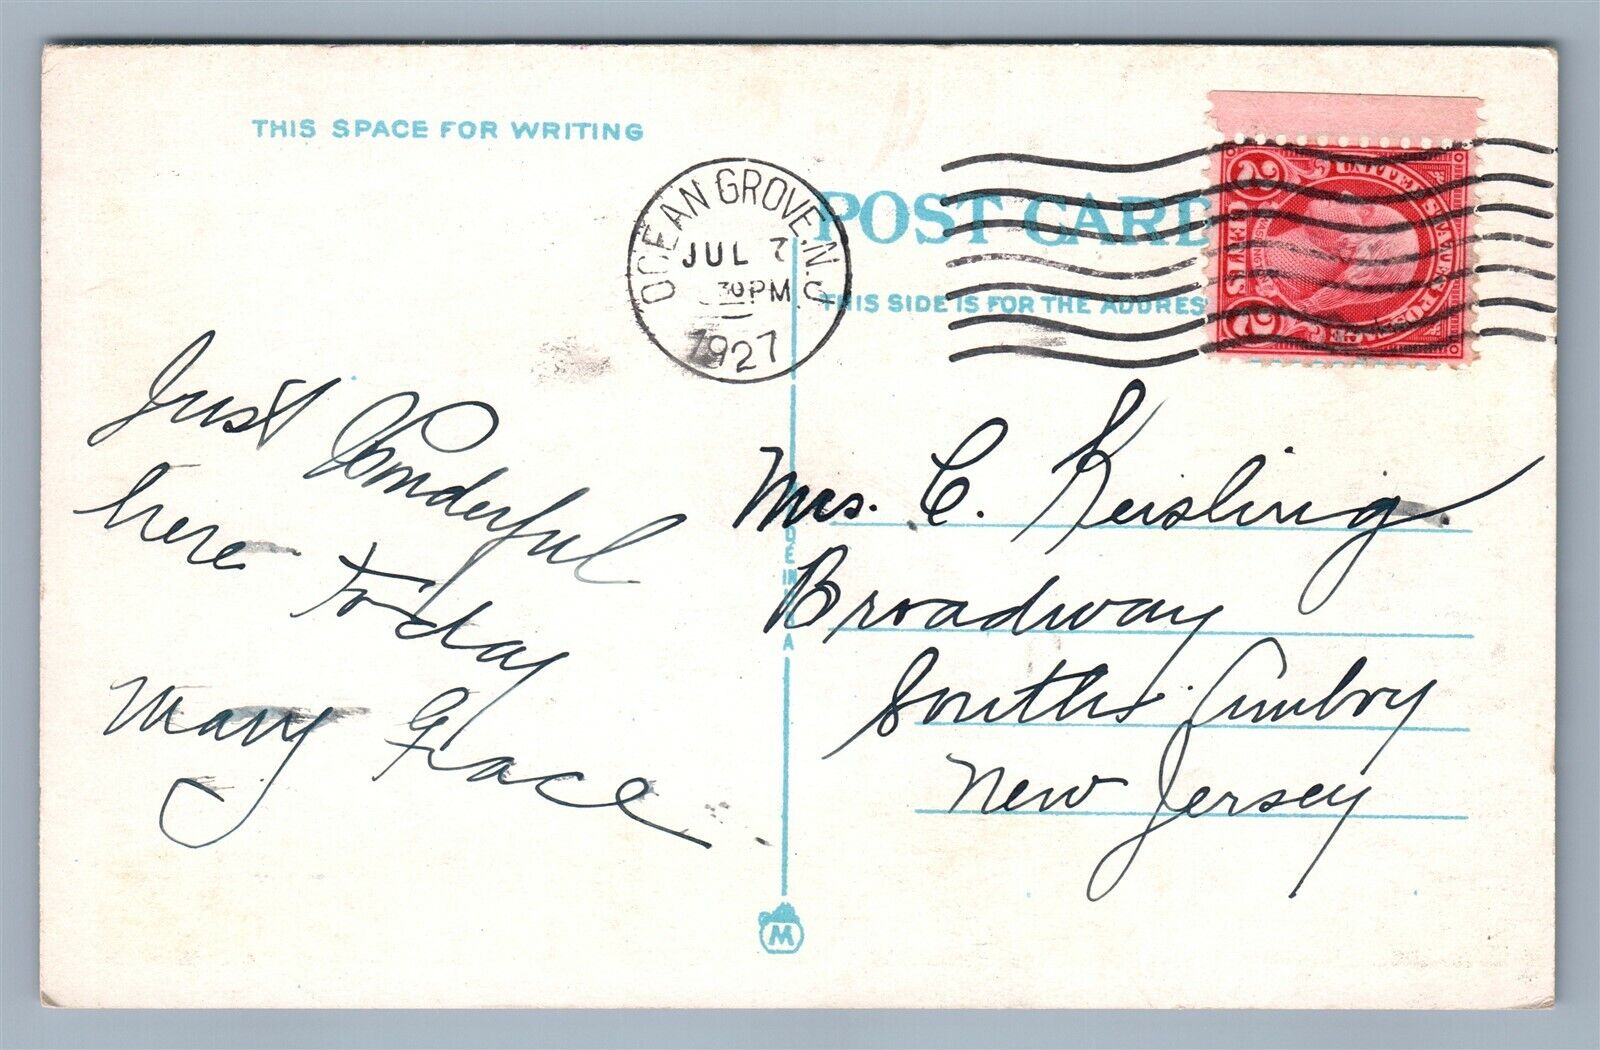 THIS SPACE FOR WRITING
OCEAN GROVE. N.J.
JUL 7
30 PM
1927
POST CARD
THIS SIDE IS FOR THE ADDRESS
UNITED STATES POSTAGE
2 CENTS 2
Just Wonderful
here today
Mary Grace
Mrs. C. Keisling
Broadway
South Amboy
New Jersey
MADE IN U.S.A
M